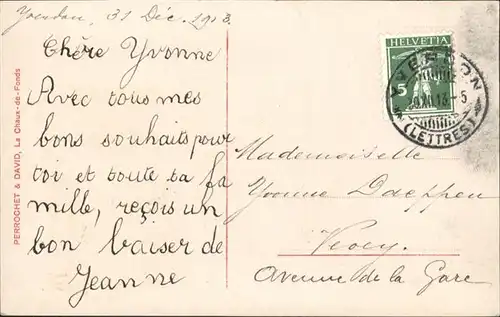 Yverdon, 31 Déc. 1913.
Chère Yvonne
Avec tous mes
bons souhaits pour
toi et toute ta fa
mille, reçois un
bon baiser de
Jeanne
PERROCHET & DAVID, La Chaux-de-Fonds
HELVETIA
5
YVERDON
XII.13 - 5
(LETTRES)
Mademoiselle
Yvonne Daeppen
Vevey.
Avenue de la Gare